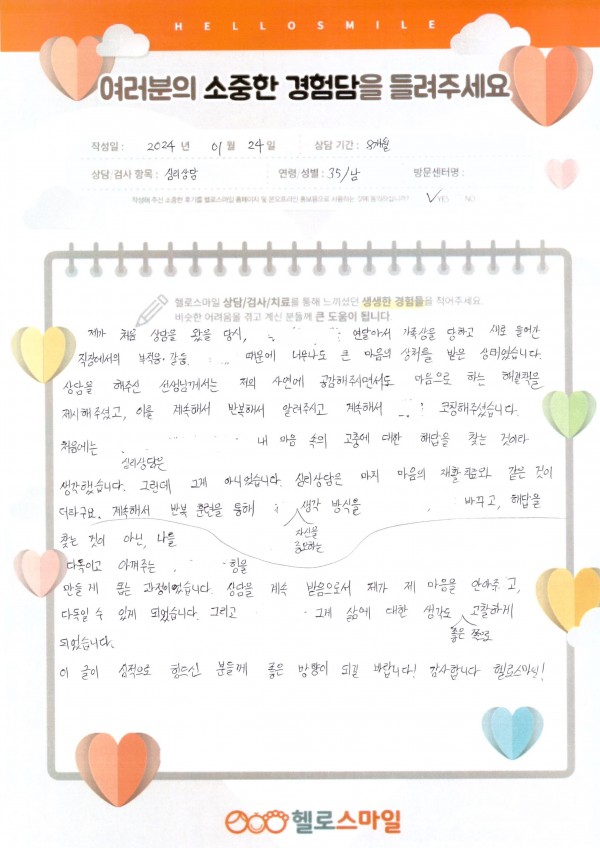 HELLOSMILE
여러분의 소중한 경험담을 들려주세요
작성일 : 2024 년 01 월 24 일 상담 기간 : 8개월
상담/검사 항목 : 심리상담 연령/성별 : 35/남 방문센터명 :
작성해 주신 소중한 후기를 헬로스마일 홈페이지 및 온오프라인 홍보용으로 사용하는 것에 동의하십니까? ✓YES NO
헬로스마일 상담/검사/치료를 통해 느끼셨던 생생한 경험들을 적어주세요.
비슷한 어려움을 겪고 계신 분들께 큰 도움이 됩니다.
제가 처음 상담을 왔을 당시, 연달아서 가족상을 당하고 새로 들어간
직장에서의 부적응·갈등, 때문에 너무나도 큰 마음의 상처를 받은 상태였습니다.
상담을 해주신 선생님께서는 저의 사연에 공감해주시면서도 마음으로 하는 해결책을
제시해주셨고, 이를 계속해서 반복해서 알려주시고 계속해서 코칭해주셨습니다.
처음에는 내 마음 속의 고충에 대한 해답을 찾는 것이라
심리상담은
생각했습니다. 그런데 그게 아니었습니다. 심리상담은 마치 마음의 재활 치료와 같은 것이
더라구요. 계속해서 반복 훈련을 통해 생각 방식을 바꾸고, 해답을
자신을
찾는 것이 아닌, 나를
다독이고 아껴주는 힘을
만들게 돕는 과정이었습니다. 상담을 계속 받음으로서 제가 제 마음을 안아주고,
다독일 수 있게 되었습니다. 그리고 그게 삶에 대한 생각도
좋은 쪽으로
되었습니다.
이 글이 심적으로 힘드신 분들께 좋은 방향이 되길 바랍니다! 감사합니다 헬로스마일!
헬로스마일